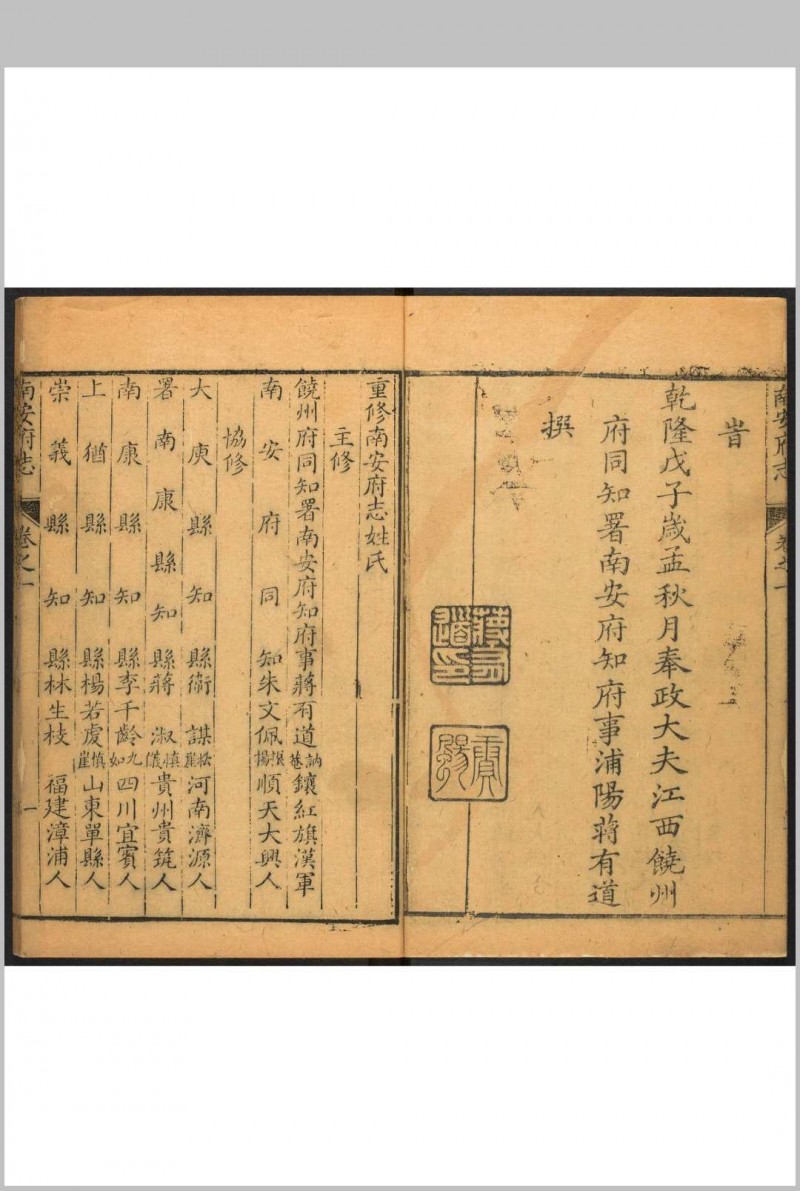 南安府志
卷之一
旹
乾隆戊子歲孟秋月奉政大夫江西饒州
府同知署南安府知府事浦陽蔣有道
撰
蔣有道印
重修南安府志姓氏
主修
饒州府同知署南安府知府事蔣有道 訥菴 鑲紅旗漢軍
南安府同知朱文佩 順天大興人
協修
大庾縣知縣衛謀 松崖 河南濟源人
署南康縣知縣蔣淑 慎儀 貴州貴筑人
南康縣知縣李千齡 九如 四川宜賓人
上猶縣知縣楊若虔 慎崖 山東單縣人
崇義縣知縣林生枝 福建漳浦人
南安府志
卷之一
一